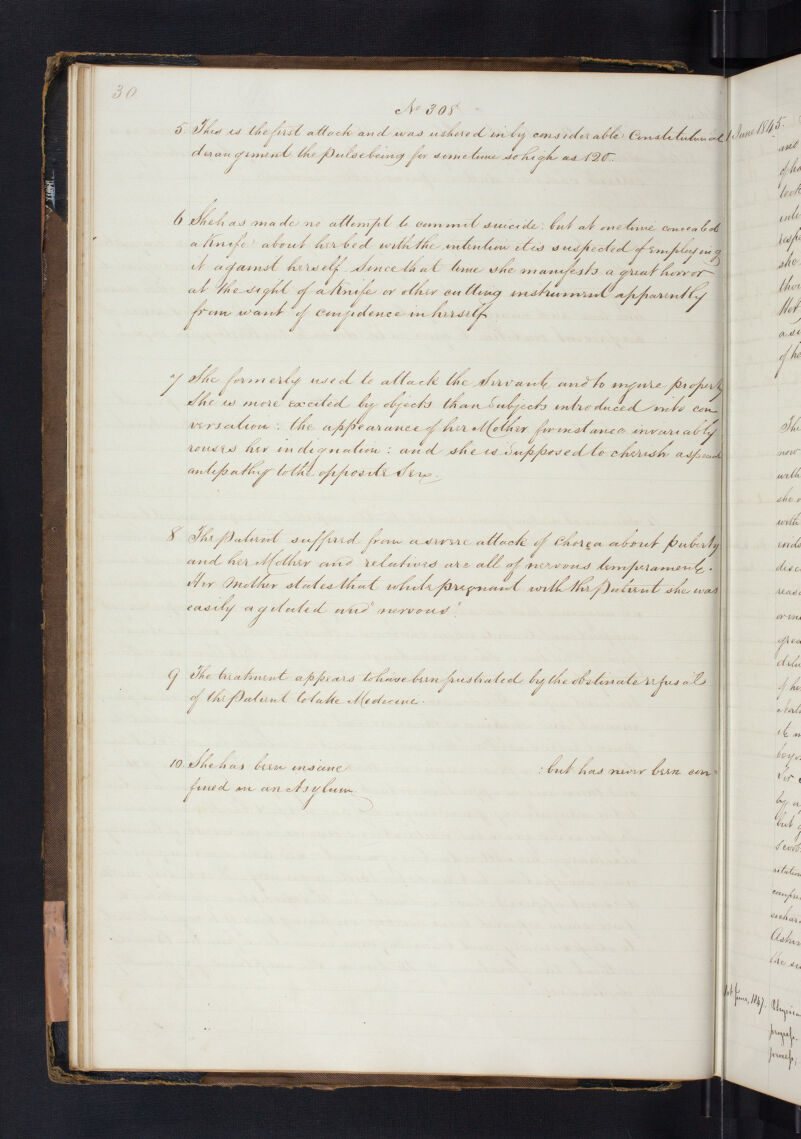 30
No 308
5. This is the first attack and was ushered in by considerable Constitutional
derangement the Pulse being for sometime so high as 120.
6 She has made no attempt to commit suicide: but at one time concealed
a Knife about her bed with the intention it is suspected of Employing
it against herself. Since that time she manifests a great horror
at the sight of a Knife or other cutting instrument apparently
from want of confidence in herself
7 She formerly used to attack the Servants and to injure property
She is more excited by objects than Subjects introduced into con
versation: the appearance of her Mother for instance invariably
rouses her indignation: and she is Supposed to cherish a special
antipathy to the opposite Sex.
8 The Patient suffered from a severe attack of Chorea about Puberty
and her Mother and relatives are all of nervous temperament.
Her Mother states that while pregnant with the Patient she was
easily agitated and nervous.
9 The treatment appears to have been frustrated by the obstinate refusal
of the Patient to take Medicine.
10. She has been insane : but has never been con
fined in an Asylum
June 1845.
June, 1847.